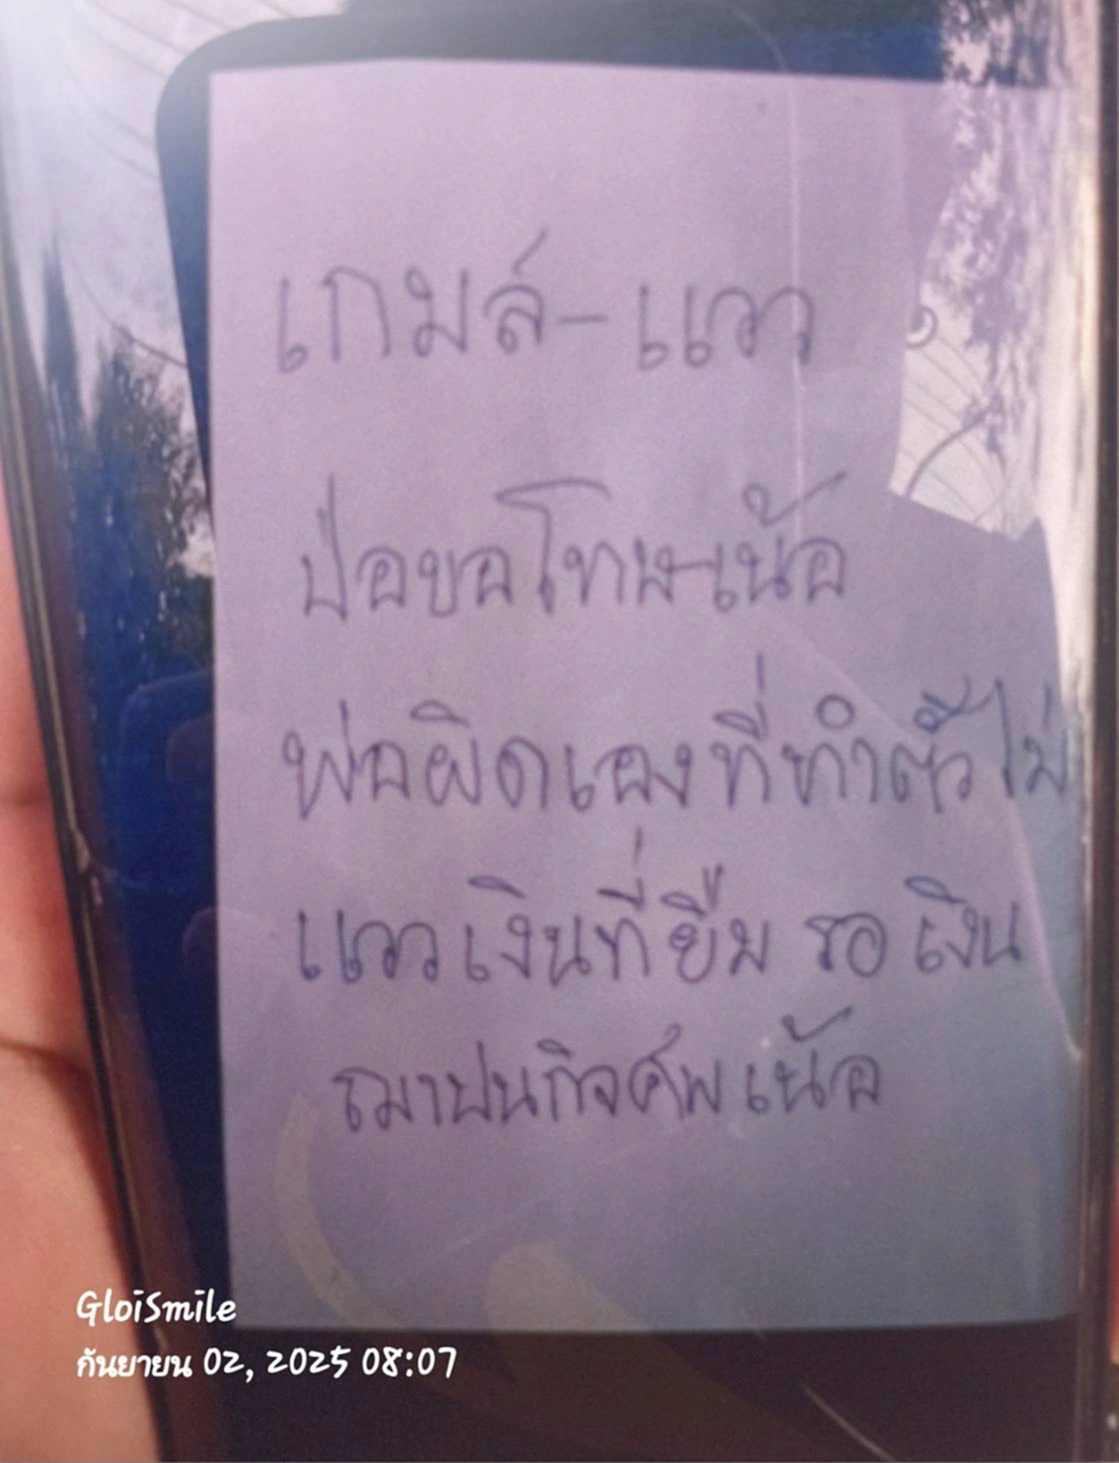 เกมส์-แวว
ป่อขอโทษเน้อ
พ่อผิดเองที่ทำตัวไม่
แววเงินที่ยืม รอ เงิน
ฌาปนกิจศัพเน้อ
GloiSmile
กันยายน 02, 2025 08:07